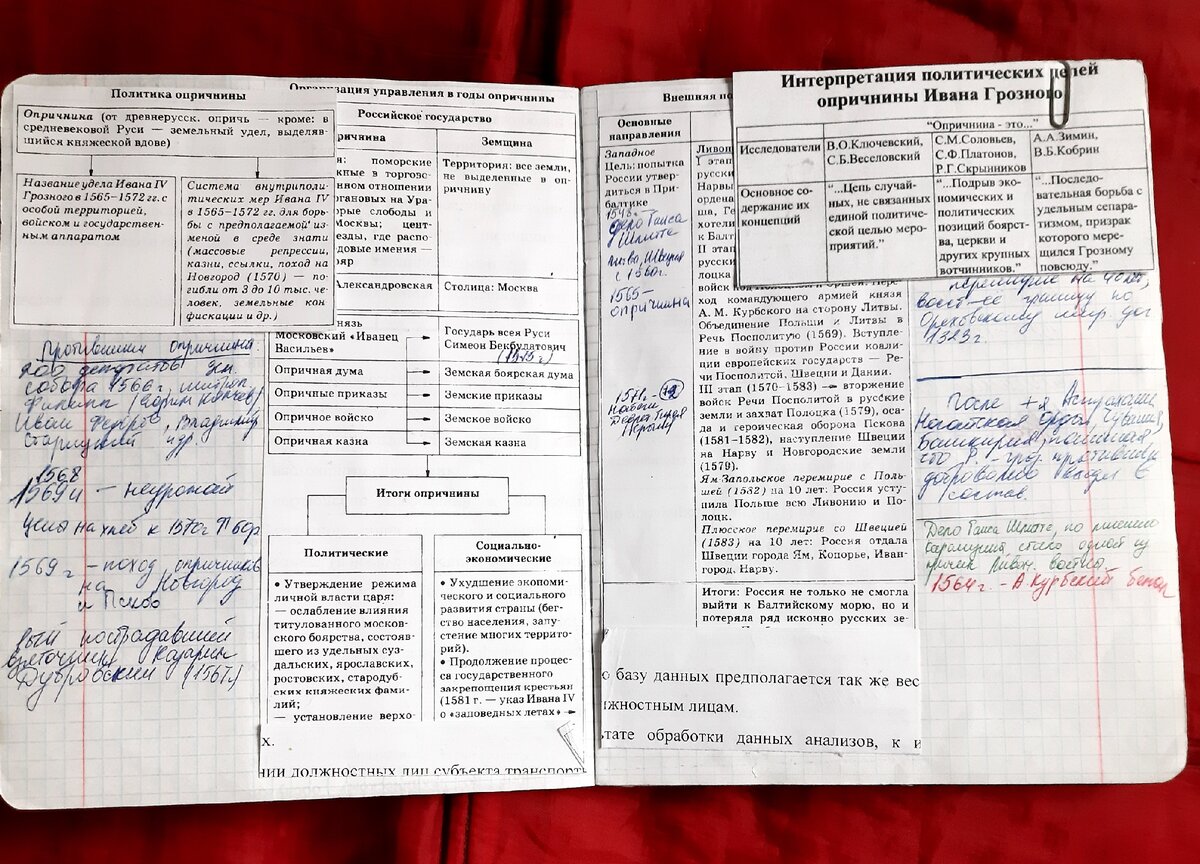 Политика опричнины
Опричнина (от древнерусск. опричь — кроме: в
средневековой Руси — земельный удел, выделяв-
шийся княжеской вдове)
Название удела Ивана IV
Грозного в 1565—1572 гг. с
особой территорией,
войском и государствен-
ным аппаратом
Система внутриполи-
тических мер Ивана IV
в 1565—1572 гг. для борь-
бы с предполагаемой из-
меной в среде знати
(массовые репрессии,
казни, ссылки, поход на
Новгород (1570) — по-
гибли от 3 до 10 тыс. че-
ловек, земельные кон
фискации и др.)
Противники опричнины
собора 1566г.
Иван
1568
1569гг — неурожай
Цены на хлеб к 1570г
1569 г — поход опричников
на Новгород
и Псков
пострадавший
Казарин
Дубровский (1567г)
управления в годы опричнины
Российское государство
Земщина
поморские
Территория: все земли,
не выделенные в оп-
ричнину
в торгов-
отношении
на Ура-
слободы и
Москвы; цент-
где распо-
имения —
Александровская
Столица: Москва
Московский «Иванец
Васильев»
Государь всея Руси
Симеон Бекбулатович
(1575г)
Опричная дума
Земская боярская дума
Опричные приказы
Земские приказы
Опричное войско
Земское войско
Опричная казна
Земская казна
Итоги опричнины
Политические
• Утверждение режима
личной власти царя:
— ослабление влияния
титулованного москов-
ского боярства, состояв-
шего из удельных суз-
дальских, ярославских,
ростовских, стародуб-
ских княжеских фами-
лий;
— установление верхо-
Социально-
экономические
• Ухудшение экономи-
ческого и социального
развития страны (бег-
ство населения, запу-
стение многих террито-
рий).
• Продолжение процес-
са государственного
закрепощения крестьян
(1581 г. — указ Ивана IV
о «заповедных летах» →
х.
нии должностных лиц субъекта транспорт
Внешняя
Основные
направления
Западное
Цель: попытка
России утвер-
диться в При-
балтике
дело Ганса
Шлитте
1560г.
1565—
опричнина
1571г. — 72
Набеги
Девлет Гирея
I этап
русски
Нарвы
ордена
хотели
к Балт
II этап
русски
лоцка
войск
ход командующего армией князя
А. М. Курбского на сторону Литвы.
Объединение Польши и Литвы в
Речь Посполитую (1569). Вступле-
ние в войну против России коали-
ции европейских государств — Ре-
чи Посполитой, Швеции и Дании.
III этап (1570–1583) → вторжение
войск Речи Посполитой в русские
земли и захват Полоцка (1579), оса-
да и героическая оборона Пскова
(1581–1582), наступление Швеции
на Нарву и Новгородские земли
(1579).
Ям-Запольское перемирие с Поль-
шей (1582) на 10 лет: Россия усту-
пила Польше всю Ливонию и По-
лоцк.
Плюсское перемирие со Швецией
(1583) на 10 лет: Россия отдала
Швеции города Ям, Копорье, Иван-
город, Нарву.
Итоги: Россия не только не смогла
выйти к Балтийскому морю, но и
потеряла ряд исконно русских зе-
о базу данных предполагается так же вес
лжностным лицам.
тате обработки данных анализов, к и
Интерпретация политических целей
опричнины Ивана Грозного
"Опричнина - это..."
Исследователи
В.О.Ключевский,
С.Б.Веселовский
С.М.Соловьев,
С.Ф.Платонов,
Р.Г.Скрынников
А.А.Зимин,
В.Б.Кобрин
Основное со-
держание их
концепций
"...Цепь случай-
ных, не связанных
единой политичес-
кой целью меро-
приятий."
"...Подрыв эко-
номических и
политических
позиций боярст-
ва, церкви и
других крупных
вотчинников."
"...Последо-
вательная борьба с
удельным сепара-
тизмом, призрак
которого мере-
щился Грозному
повсюду."
перемирие на 40 лет,
границу по
Ореховскому мир дог
1323г.
После
Ногайская Орда, Чувашия,
Башкирия
добровольно в
состав.
Дело Ганса Шлитте, по мнению
Карамзина, стало одной из
причин Ливон. войны.
1564г. — А. Курбский бежал